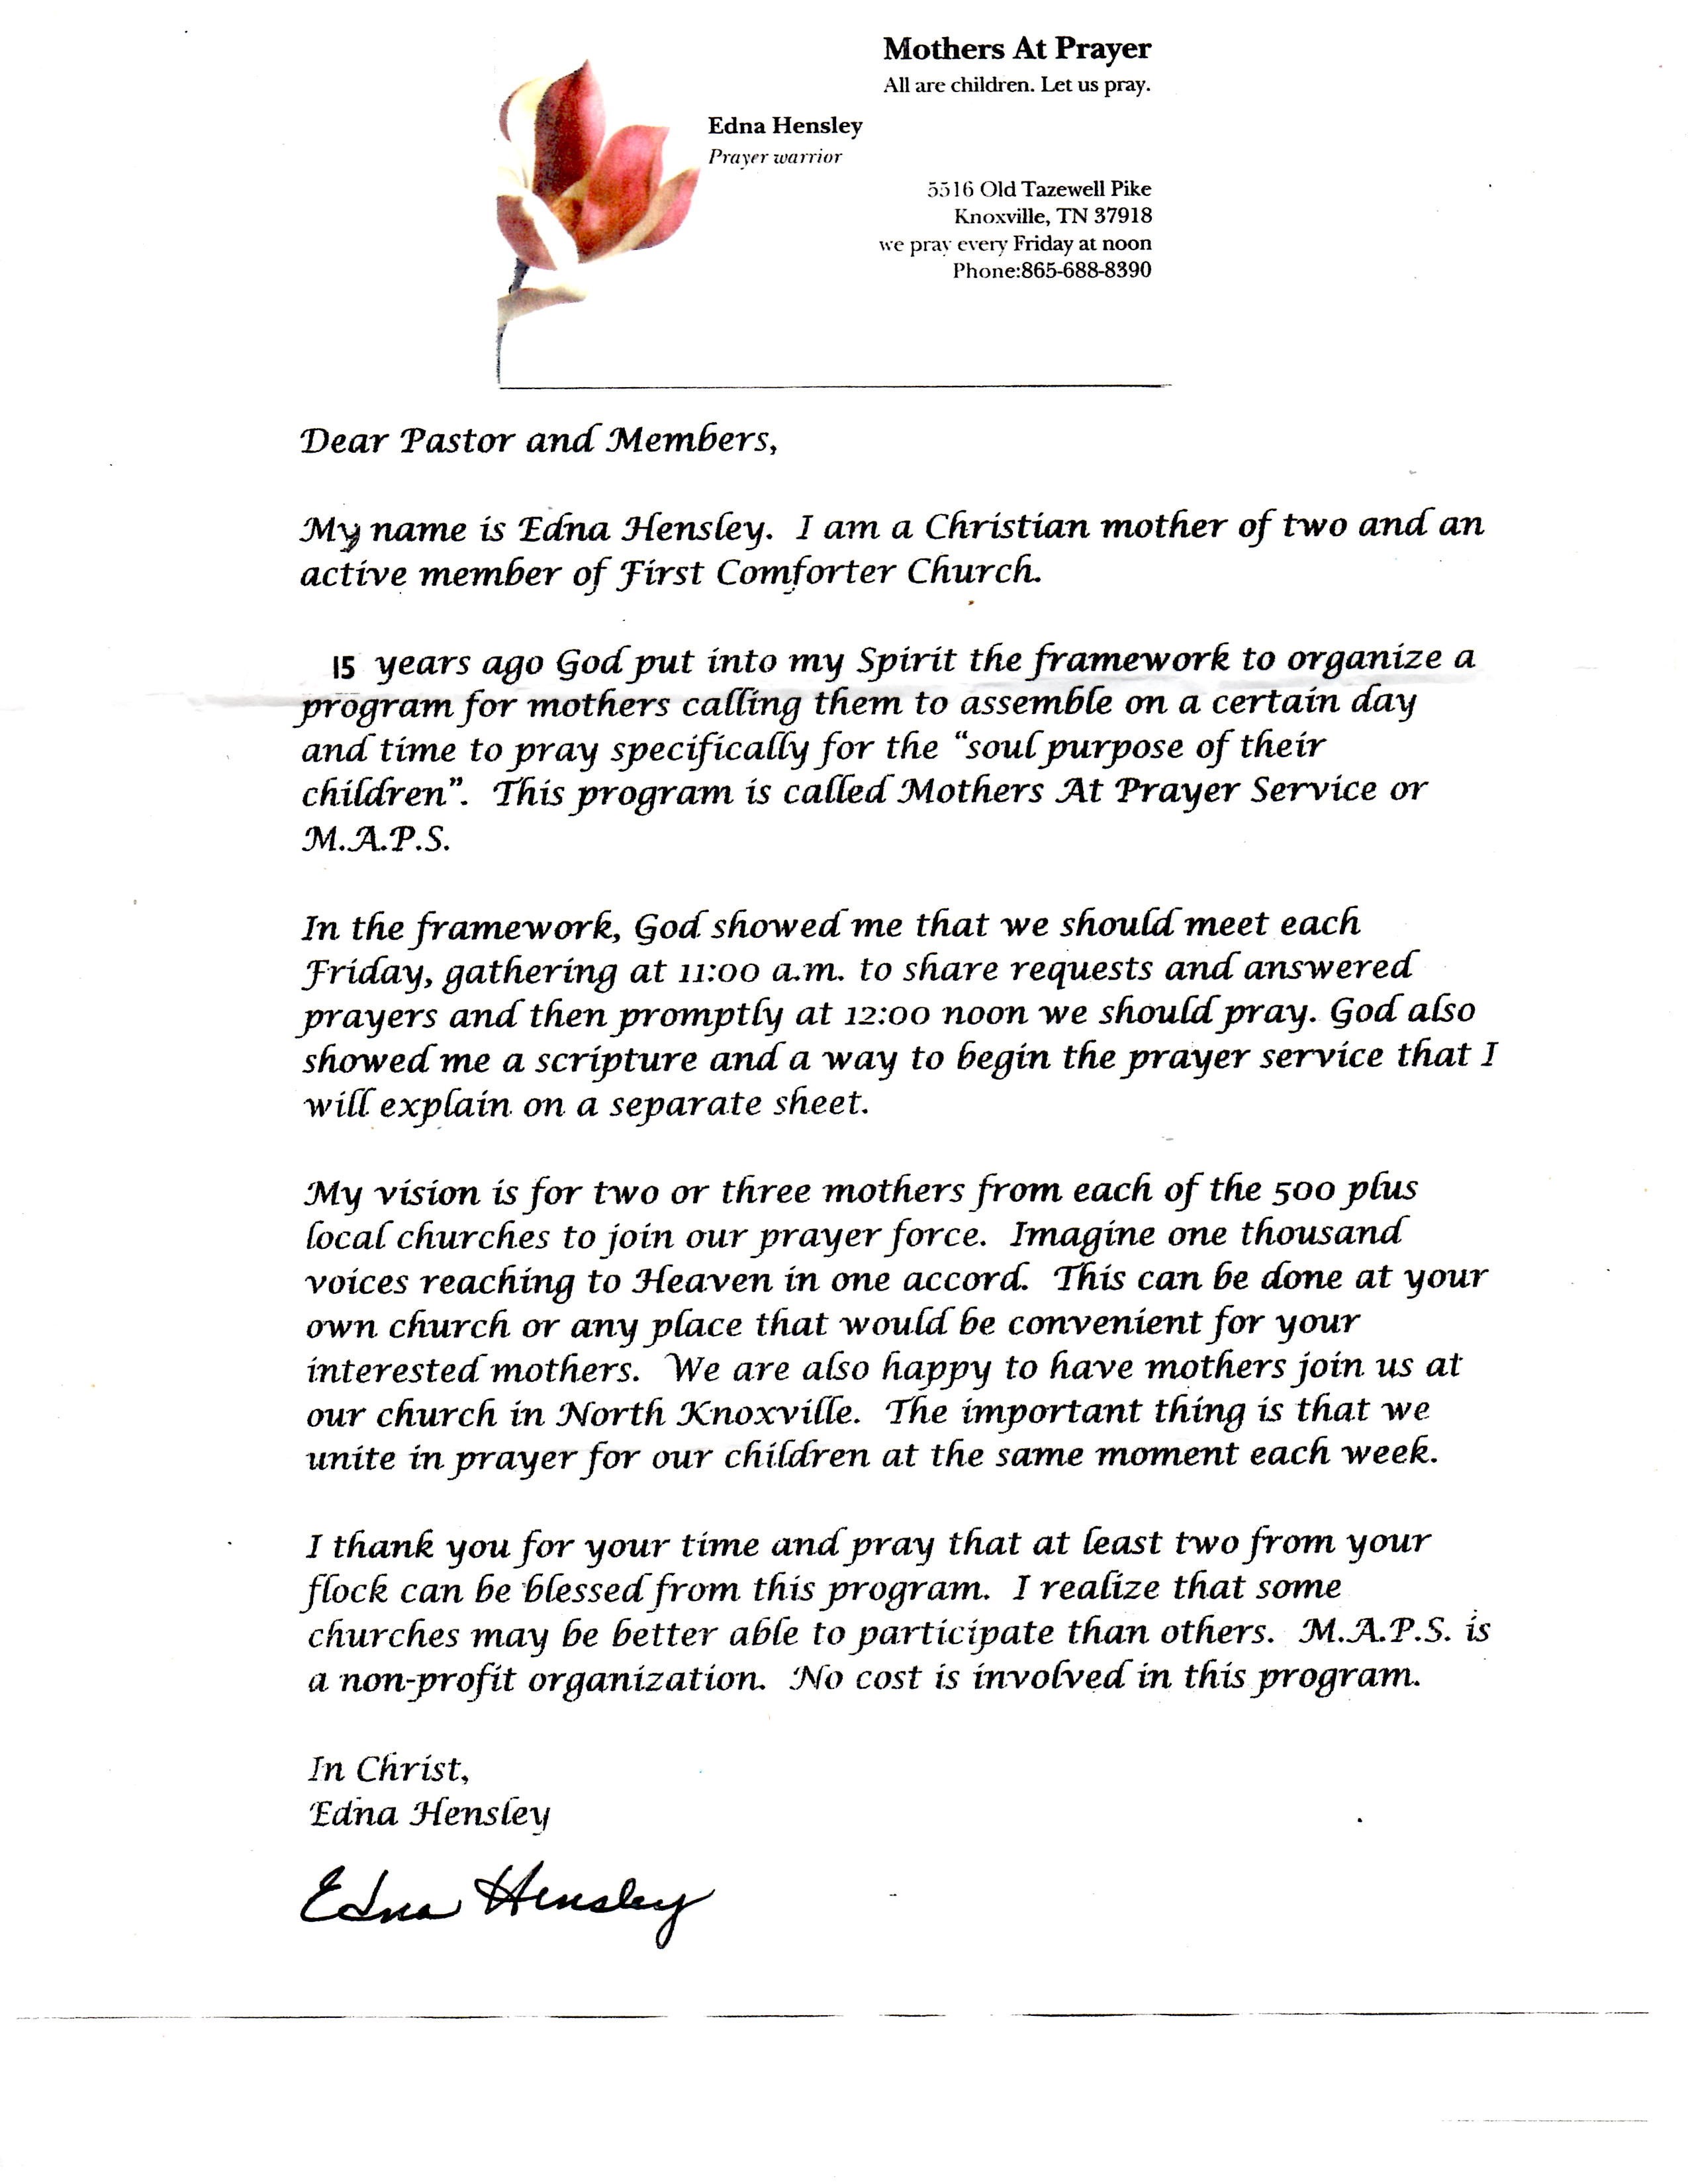 Mothers At Prayer
All are children. Let us pray.
Edna Hensley
Prayer warrior
5516 Old Tazewell Pike
Knoxville, TN 37918
we pray every Friday at noon
Phone:865-688-8390
Dear Pastor and Members,
My name is Edna Hensley. I am a Christian mother of two and an
active member of First Comforter Church.
15 years ago God put into my Spirit the framework to organize a
program for mothers calling them to assemble on a certain day
and time to pray specifically for the “soul purpose of their
children”. This program is called Mothers At Prayer Service or
M.A.P.S.
In the framework, God showed me that we should meet each
Friday, gathering at 11:00 a.m. to share requests and answered
prayers and then promptly at 12:00 noon we should pray. God also
showed me a scripture and a way to begin the prayer service that I
will explain on a separate sheet.
My vision is for two or three mothers from each of the 500 plus
local churches to join our prayer force. Imagine one thousand
voices reaching to Heaven in one accord. This can be done at your
own church or any place that would be convenient for your
interested mothers. We are also happy to have mothers join us at
our church in North Knoxville. The important thing is that we
unite in prayer for our children at the same moment each week.
I thank you for your time and pray that at least two from your
flock can be blessed from this program. I realize that some
churches may be better able to participate than others. M.A.P.S. is
a non-profit organization. No cost is involved in this program.
In Christ,
Edna Hensley
Edna Hensley